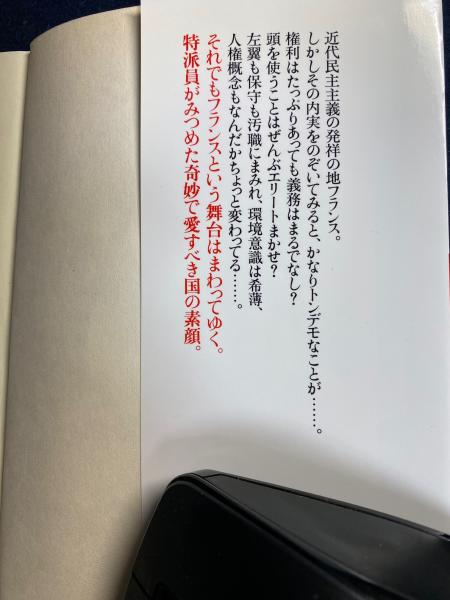 近代民主主義の発祥の地フランス。
しかしその内実をのぞいてみると、かなりトンデモなことが……。
権利はたっぷりあっても義務はまるでなし?
頭を使うことはぜんぶエリートまかせ?
左翼も保守も汚職にまみれ、環境意識は希薄、
人権概念もなんだかちょっと変わってる……。
それでもフランスという舞台はまわってゆく。
特派員がみつめた奇妙で愛すべき国の素顔。